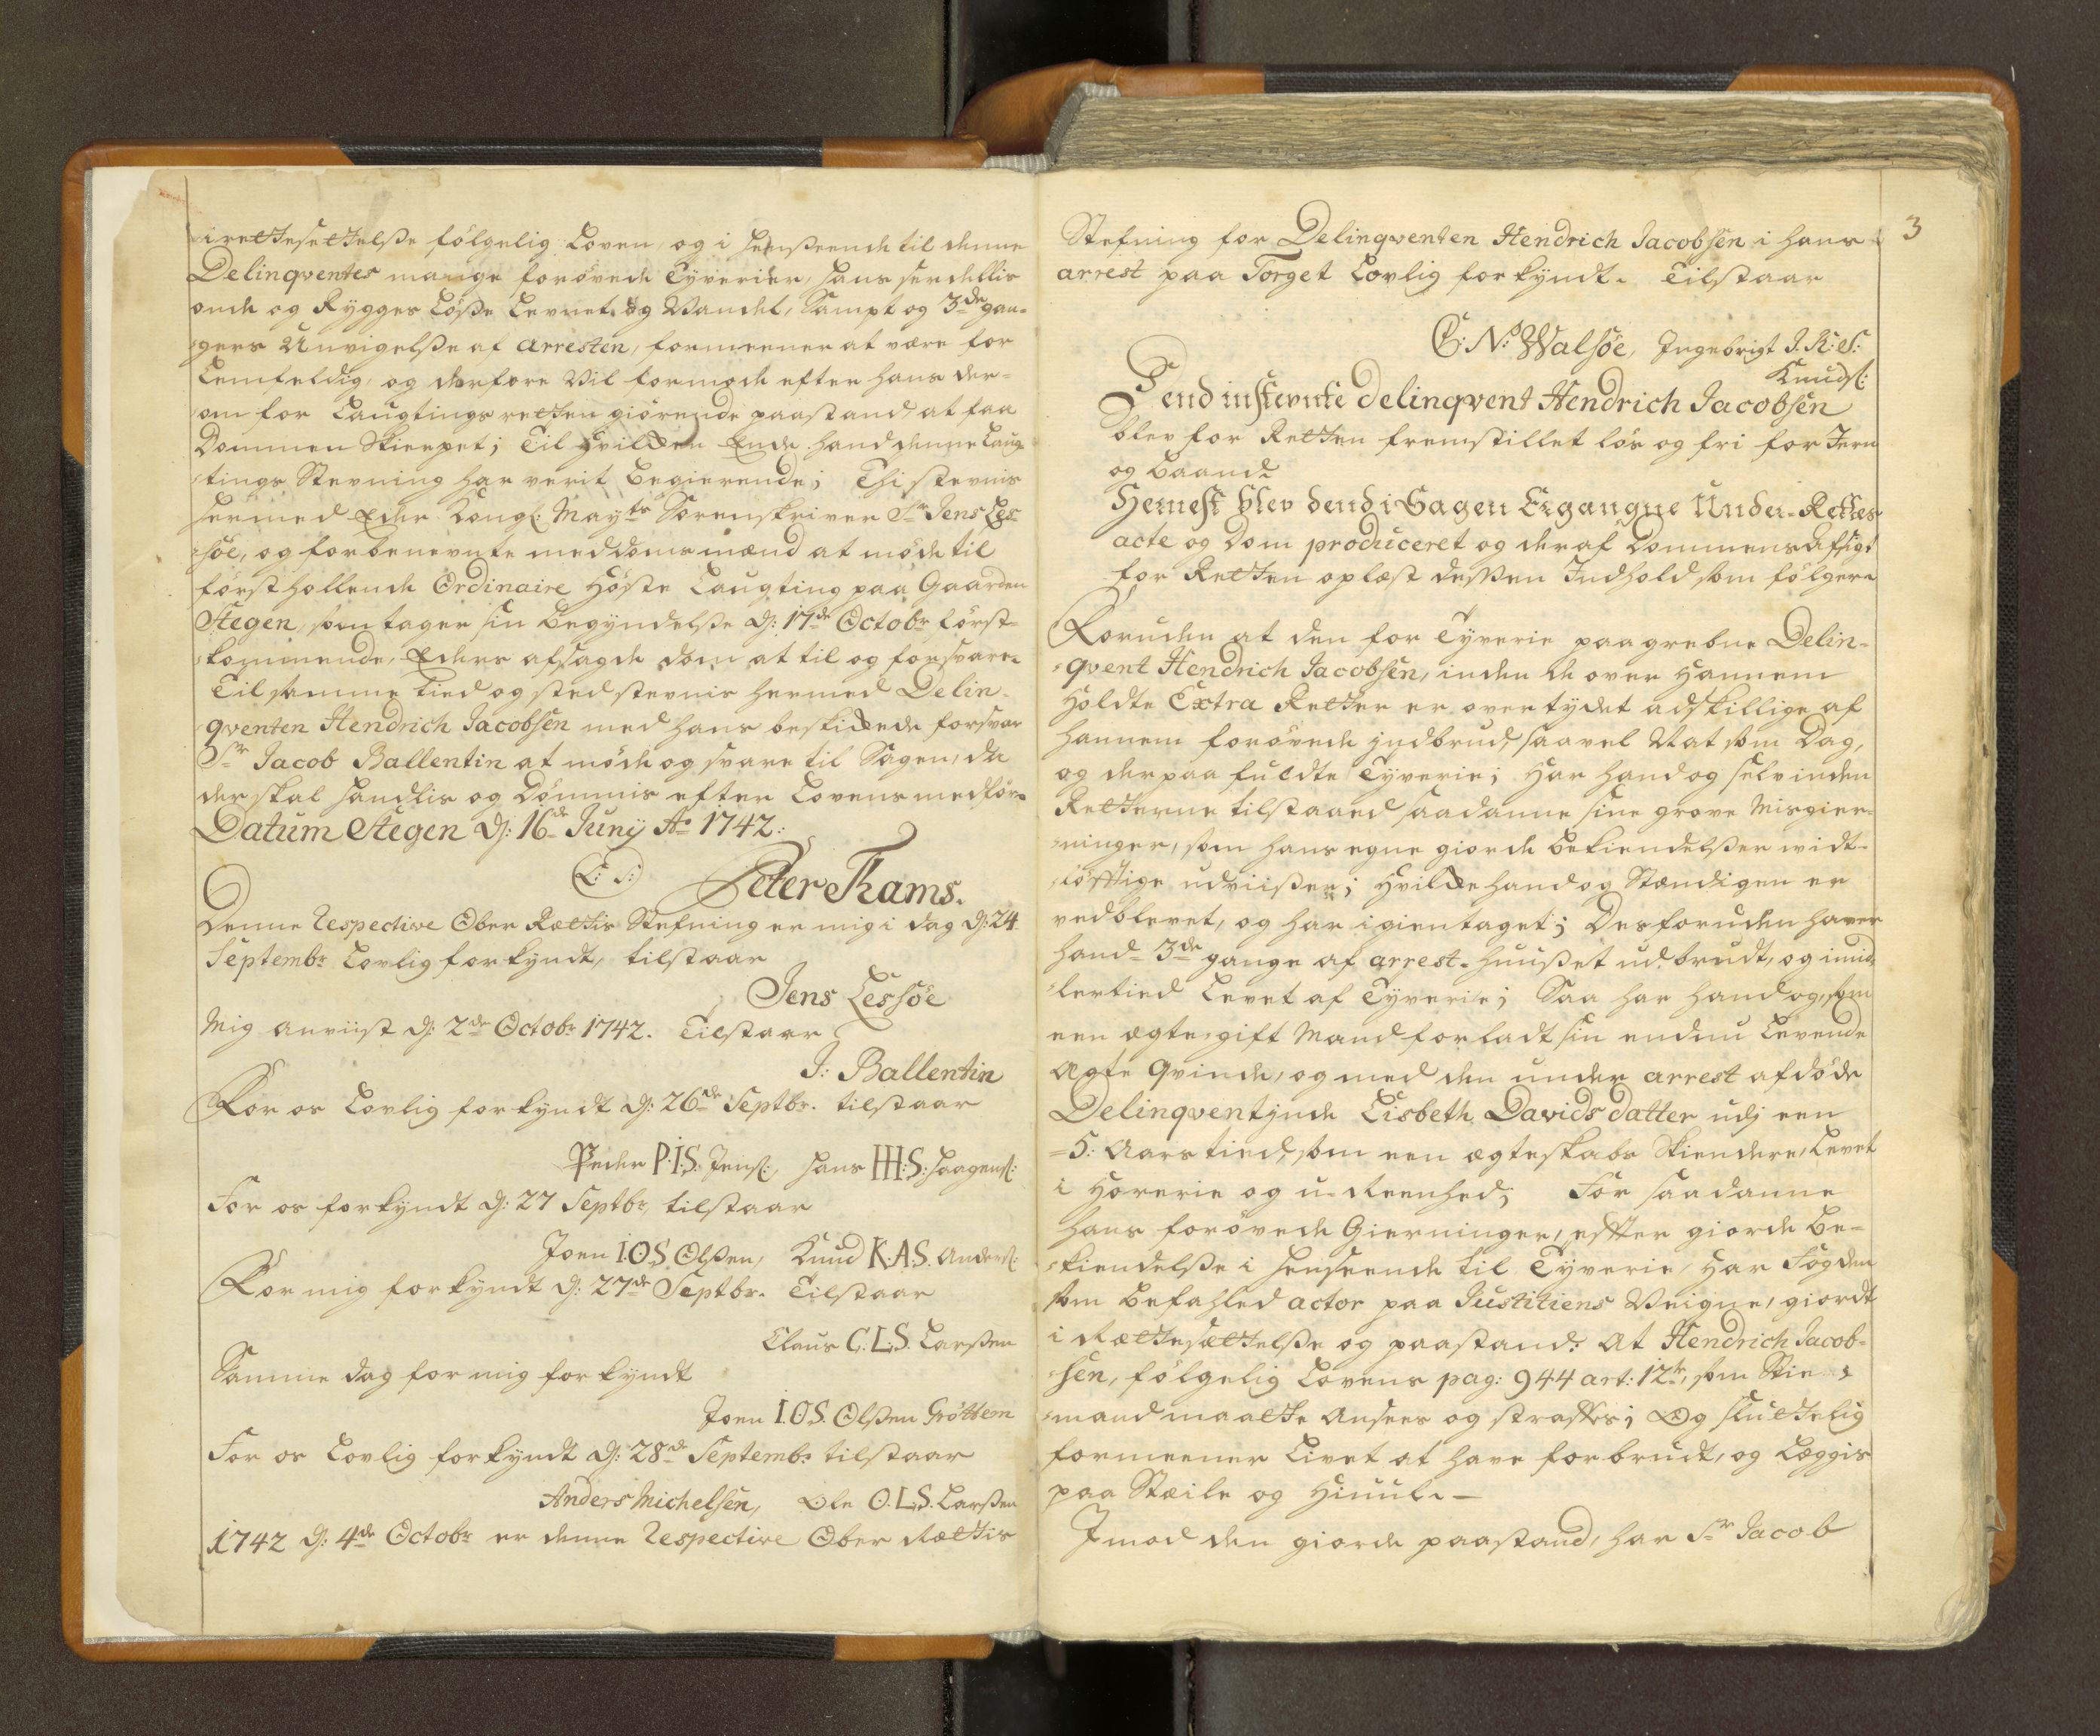 irettesettelsse fölgelig Loven, og i henseende til denne
Delinqventes mange forövede Tyverier, hans serdellis
onde og Rygges Lösse Levnet og Vandel, Sampt og 3de gan-
gers Unvigelsse af arresten, formeener at være for
Lemfeldig, og derfore Vil formode efter hans der-
om for Laugtings retten giörende paastand, at faa
Dommen Skierpet; Til hvilken Ende hand denne Laug-
tings Stevning har verit Begierende; Thi stevnis
hermed Eder Kongl: Mayts Sorenskriver Sr Jens Les-
söe, og forbenevnte meddoms mænd at möde til
först hollende Ordinaire Höste Laugting paa Gaarden
Stegen, som tager sin Begyndelsse d: 17de Octobr först-
kommende, Eders afsagde dom at til og forsvare.
Til samme tied og sted stevnis hermed Delin-
qventen Hendrich Jacobsen med hans beskikkede forsvar
Sr Jacob Ballentin at möde og svare til Sagen, da
der skal handlis og Dömmis efter Lovens medför.
Datum Stegen d: 16de Junij Ao 1742.
L: S: Peter Thams.
Denne Respective Ober Rettis Stefning er mig i dag d: 24
Septembr Lovlig forkyndt, tilstaar
Jens Lessöe
Mig anviist d: 2de Octobr 1742. Tilstaar
J: Ballentin
For os Lovlig forkyndt d: 26de Septbr. tilstaar
Peder P.I.S. Jens:, Hans H.H.S. Haagens:
For os forkyndt d: 27 Septbr, tilstaar
Joen I.O.S. Olssen, Knud K.A.S. Anders:
For mig forkyndt d: 27de Septbr. Tilstaar
Claus C.L.S. Larssen
Samme dag for mig forkyndt
Joen I.O.S. Olssen Gröttem
For os Lovlig forkyndt d: 28de Septembr tilstaar
Anders Michelsen, Ole O.L.S. Larssen
1742 d: 4de Octobr er denne Respective Ober Rettis
3
Stefning for Delinqventen Hendrich Jacobsen i hans
arrest paa Torget Lovlig forkyndt. Tilstaar
C: N: Walsöe, Ingebrigt I.K:S:
Knuds:
Dend instevnte delinqvent Hendrich Jacobsen
blev for Retten fremstillet lös og fri for Jern
og Baand.
Hernest blev dend i Sagen Ergangne Under-Rettes
acte og Dom produceret og deraf Dommens Afsigt
for Retten oplæst dessen Indhold som fölger
Foruden at den for Tyverie paagrebne Delin-
qvent Hendrich Jacobsen, inden de over Hannem
Holdte Extra Retter er overtydet adskillige af
hannem forövede indbrud, saavel Nat som Dag,
og derpaa fuldte Tyverie; Har hand og selv inden
Retterne tilstaaed saadanne sine grove Misgier-
ninger, som hans egne giorde bekiendelsser widt-
löfftige udviisser; hvilke hand og Stændigen er
vedblevet, og har igientaget; Desforuden haver
hand 3de gange af arrest-huusset udbrudt, og imid-
lertied Levet af Tyverie; Saa har hand og, som
een ægte gift Mand forladt sin endnu Levende
Ægte Qvinde, og med den under arrest afdöde
Delinqventinde Lisbeth Davids datter udj een
5: Aars tied, som een ægteskabs Skiendere, Levet
i Horerie og u-Reenhed; For saadanne
hans forövede Gierninger, effter giorde Be-
kiendelsse i henseende til Tyverie, Har Fogden
som Befahled actor paa Justitiens Veigne, giordt
i Rettesættelsse og paastand: At Hendrich Jacob-
sen, fölgelig Lovens pag: 944 art: 12te, som Stie-
mand maatte Ansees og straffes; Og sluttelig
formeener Livet at have forbrudt, og Leggis
paa Steile og Hiuul.
Imod den giorde paastand, har Sr Jacob